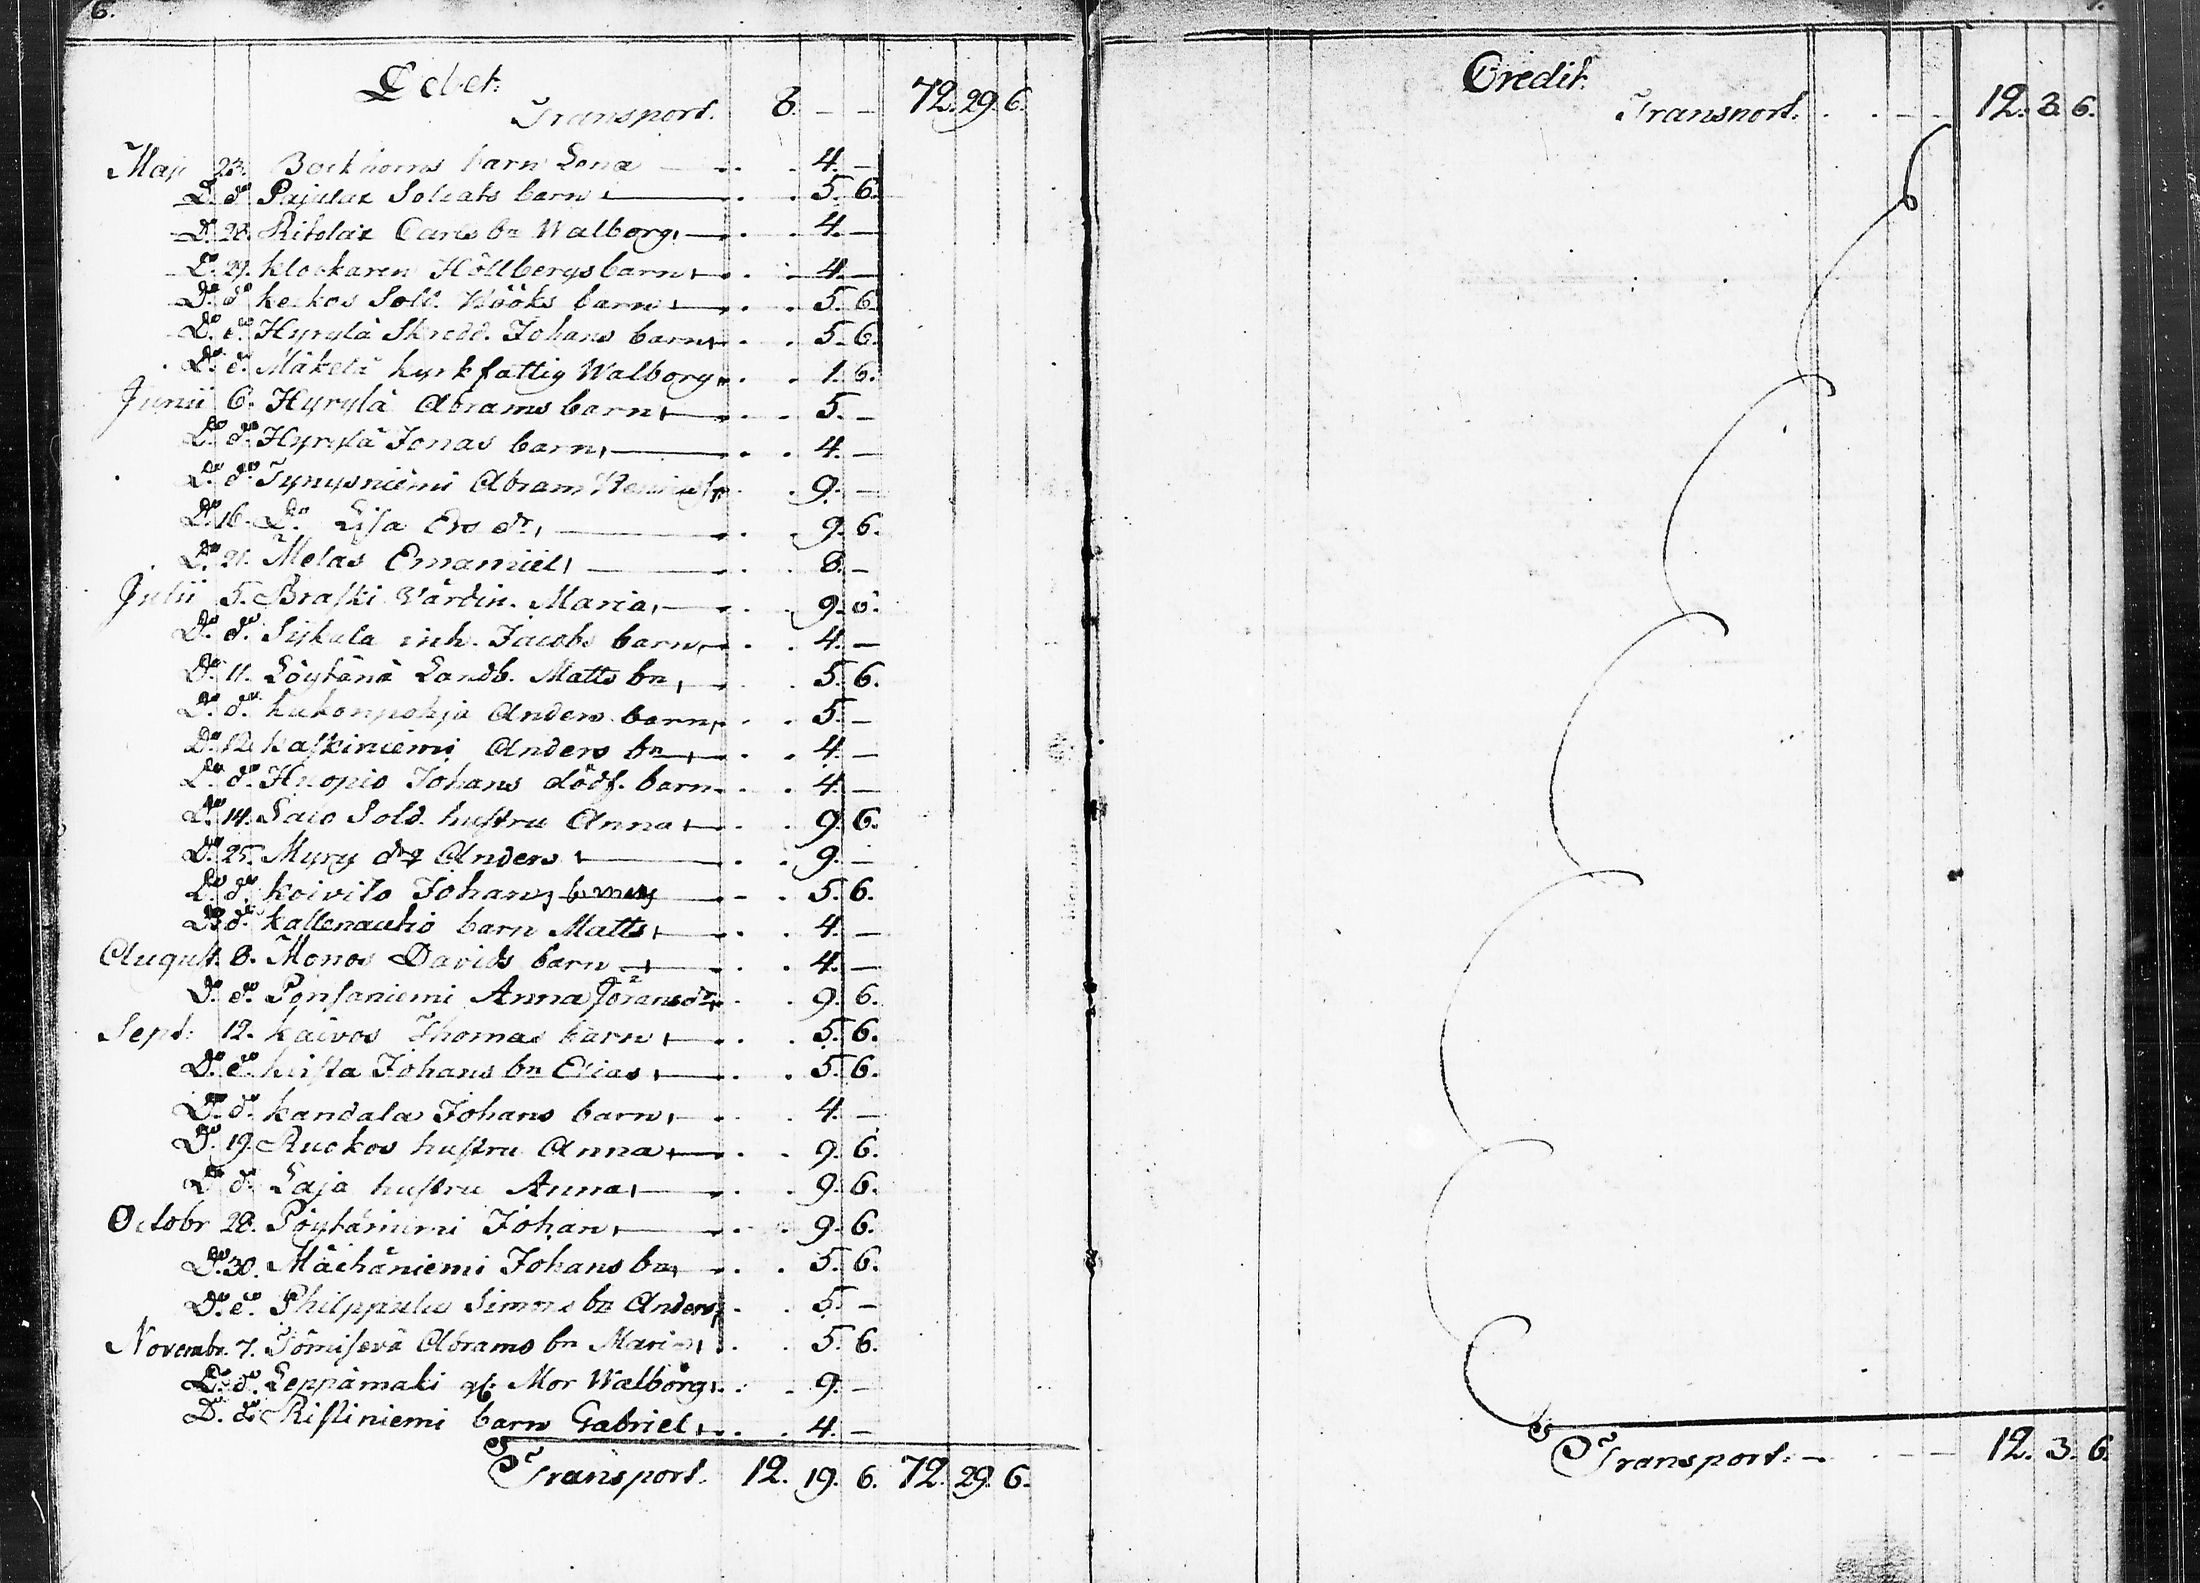 6.
Debet.
Transport. 8. — — 72. 29. 6.
Maji 23. Backhoms barn Lena — 4. —
Do. do. Pajulax Soldats barn — 5. 6.
Do. 28. Ritolax Carls bn Walborg, — 4. —
Do. 29. klockaren Höllbergs barn, — 4. —
Do. do. keckos Sold. Hööks barn, — 5. 6.
Do. do. Hyrylä Skredd. Johans barn, 5. 6.
Do. do. Mäkelä hyrkfattig Walborg, 1. 6.
Junii 6. Hyrylä Abrams barn, — 5. —
Do. do. Hyrylä Jonas barn, — 4. —
Do. do. Tyrysniemi Abram 9. —
Do. 16. Do. Lisa Ers dr, — 9. 6.
Do. 21. Melas Emanuel, — 8. —
Julii 5. Braski Värdin. Maria, — 9. 6.
Do. do. Sijkala inh. Jacobs barn, 4. —
Do. 11. Löytänä Landb. Matts bn, — 5. 6.
Do. do. kukonpohja Anders barn, 5. —
Do. 12. kaskiniemi Anders bn, 4. —
Do. do. Huopio Johans dödf. barn 4. —
Do. 14. Laio Sold. hustru Anna, — 9. 6.
Do. 25. Myry Anders, — 9. —
Do. do. koivilo Johans, — 5. 6.
Do. do. kallenautio barn Matts, — 4. —
August. 8. Monos Davids barn — 4. —
Do. do. Ponsaniemi Anna Joransdr, 9. 6.
Sept: 12. kaivos Thomas barn, — 5. 6.
Do. do. Johans bn Elias, — 5. 6.
Do. do. kandala Johans barn, — 4. —
Do. 19. Ruokos hustru Anna, — 9. 6.
Do. do. Laja hustru Anna, — 9. 6.
Octobr 28. Pöytäniemi Johan, — 9. 6.
Do. 30. Mäihäniemi Johans bn, — 5. 6.
Do. do. Philppulas Simons bn Anders, 5. —
Novembr. 7. Tömisevä Abrams bn Maria, 5. 6.
Do. do. Leppämaki Mor Walborg, 9. —
Do. do. Ristiniemi barn Gabriel, 4. —
Transport. 12. 19. 6. 72. 29. 6.
Credit.
Transport. — — 12. 3. 6.
Transport. — — — 12. 3. 6.